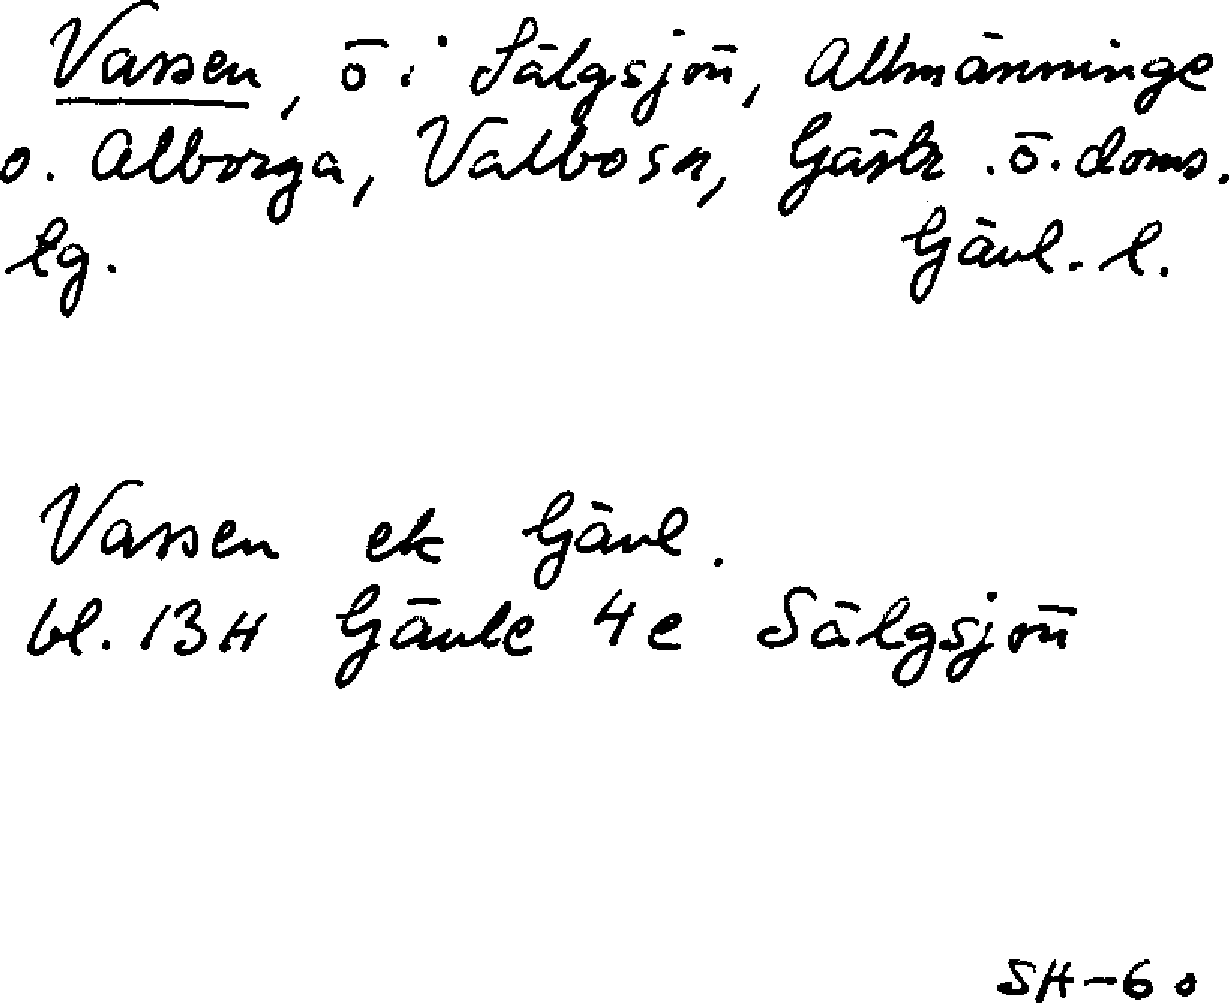 Vassen, ö i Sälgsjön, Allmänninge
o. Alborga, Valbo sn, Gästr. ö. doms.
lg. Gävl. l.
Vassen ek Gävl.
bl. 13H Gävle 4e Sälgsjön
SH-60